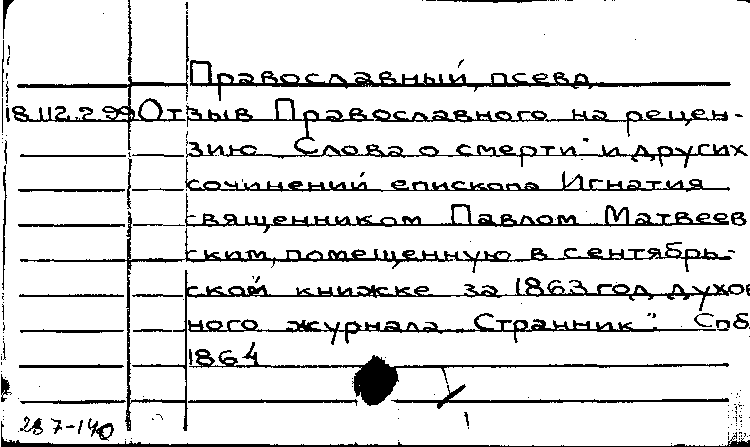 Православный, псевд.
18.112.2.99 Отзыв Православного на рецен-
зию „Слова о смерти" и других
сочинений епископа Игнатия
священником Павлом Матвеев
ским, помещенную в сентябрь-
ской книжке за 1863 год духов
ного журнала „Странник". Спб
1864
287-140